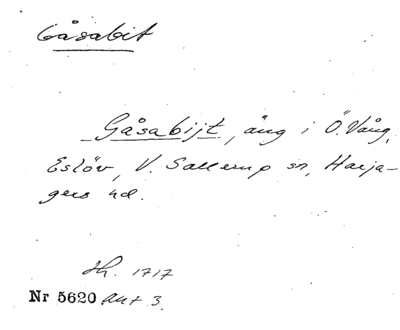 Gåsabit
Gåsabijt, äng i Ö. Vång,
Eslöv, V. Sallerup sn, Harja-
gers hd.
Sk. 1717
Nr 5620 ant 3.